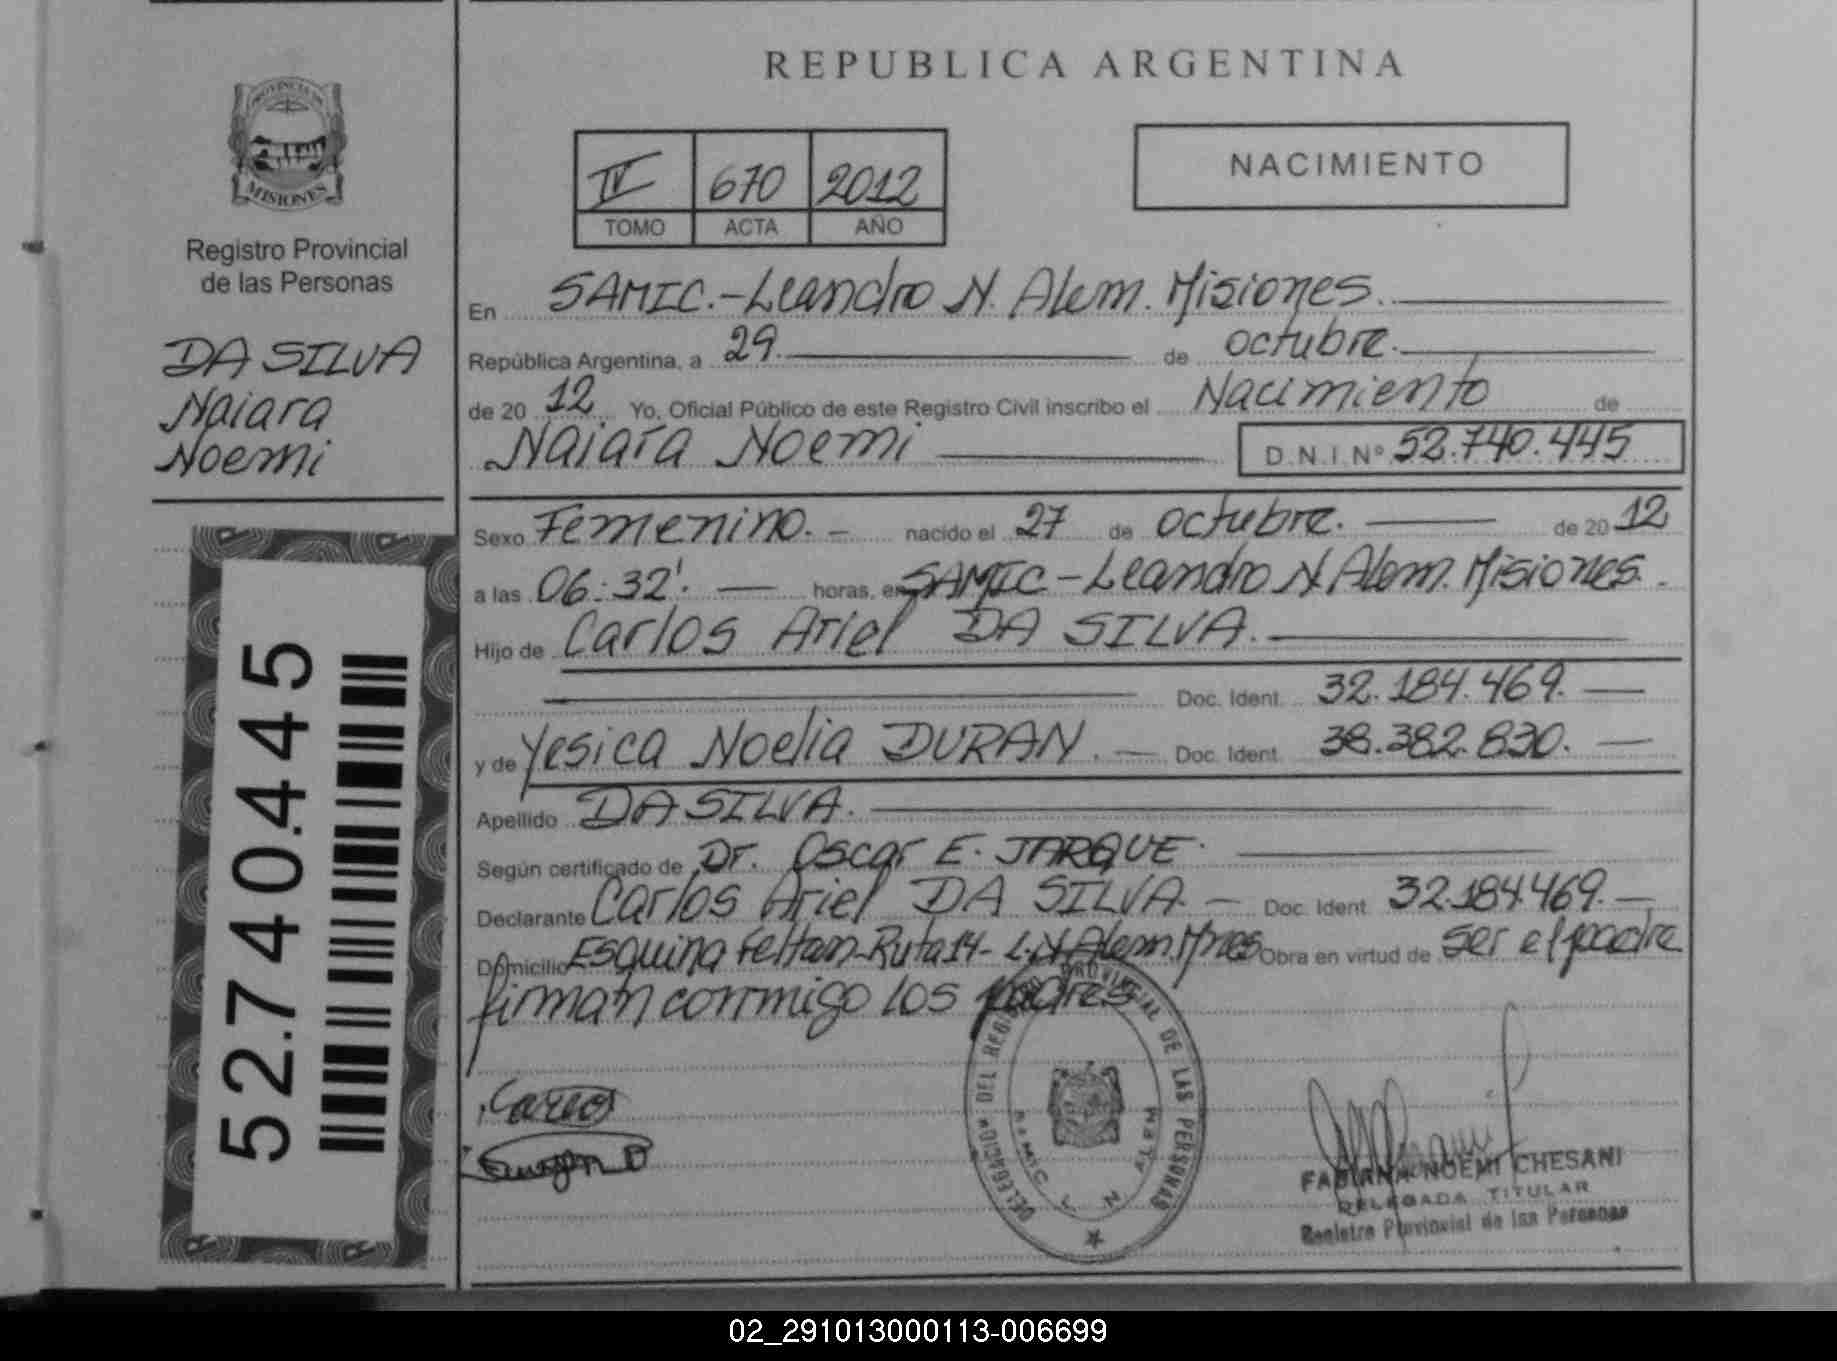 REPUBLICA ARGENTINA
PROVINCIA DE
MISIONES
Registro Provincial
de las Personas
DA SILVA
Naiara
Noemi
52.740.445
IV 670 2012
TOMO ACTA AÑO
NACIMIENTO
En SAMIC.-Leandro N. Alem. Misiones.
República Argentina, a 29. de octubre.
de 20 12 Yo, Oficial Público de este Registro Civil inscribo el Nacimiento de
Naiara Noemi D.N.I. Nº 52.740.445
Sexo Femenino. - nacido el 27 de octubre. de 20 12
a las 06:32'. horas, en SAMIC - Leandro N. Alem. Misiones.
Hijo de Carlos Ariel DA SILVA.
Doc. Ident. 32.184.469.
y de Yesica Noelia DURAN. Doc. Ident. 38.382.830.
Apellido DA SILVA.
Según certificado de Dr. Oscar E. JARQUE.
Declarante Carlos Ariel DA SILVA. - Doc. Ident. 32.184.469.
Domicilio Esquina Feltan-Ruta 14- L.N Alem. Mnes Obra en virtud de ser el padre
firman conmigo los padres
DELEGACION DEL REGISTRO PROVINCIAL DE LAS PERSONAS
FABIANA NOEMI CHESANI
DELEGADA TITULAR
Registro Provincial de las Personas
02_291013000113-006699